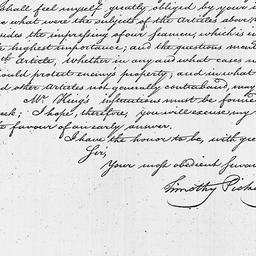 shall feel myself greatly obliged by your i
s what were the subjects of the articles above
udes the impressing of our seamen, which is i
e highest importance; and the questions ment
article, whether in any and what cases
ould protect enemys property; and in what
d other articles not generally contraband, may
Mr. King's instructions must be
eek; I hope, therefore, you will excuse my
e favour of an early answer.
I have the honor to be, with gre
Sir,
Your most obedient serva
Timothy Picke